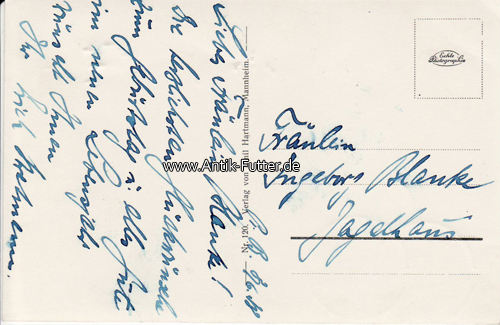 Liebe Fräulein Blanke!
Die herzlichsten Glückwünsche
zum Geburtstag u. alles Gute
im neuen Lebensjahr
wünscht Ihnen
Ihr
Nr. 120. Verlag von Emil Hartmann, Mannheim.
Echte
Photographie
Fräulein
Ingeborg Blanke
Jagdhaus
www.Antik-Futter.de